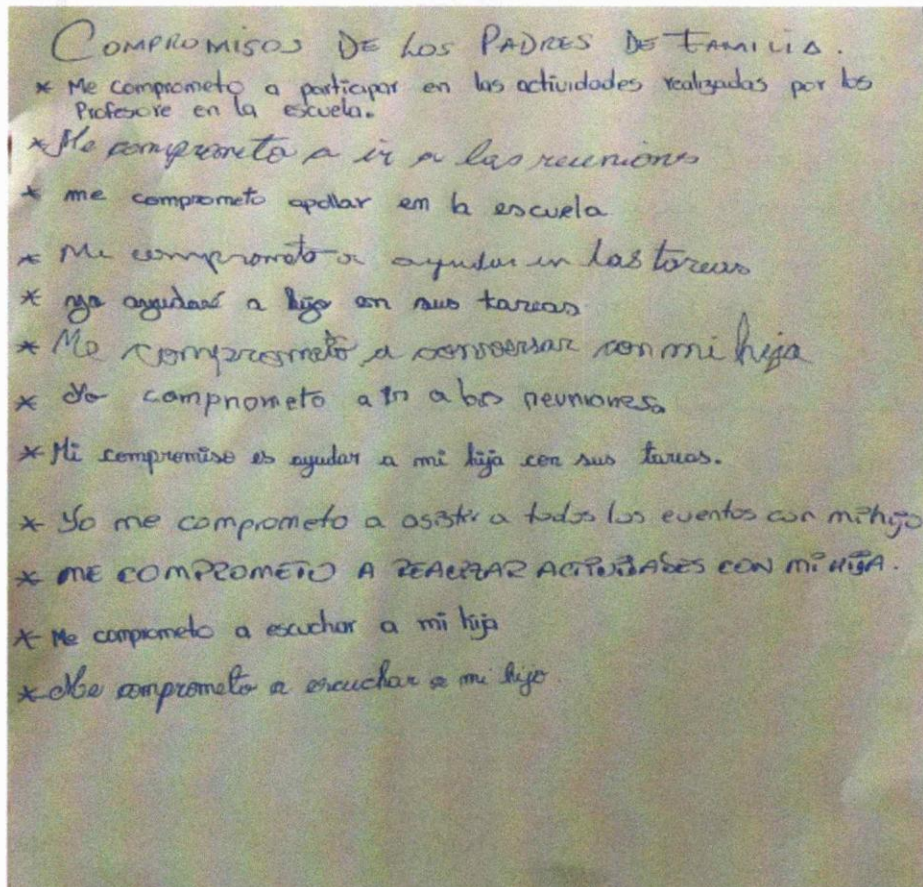 COMPROMISOS DE LOS PADRES DE FAMILIA.
* Me comprometo a participar en las actividades realizadas por los
Profesore en la escuela.
* Me comprometo a ir a las reuniones
* me comprometo apollar em la escuela
* Me comprometo a ayudar en las tareas
* yo ayudaré a hijo en sus tareas
* Me comprometo a conversar con mi hija
* Yo comprometo a ir a las reuniones
* Mi compromiso es ayudar a mi hija con sus tareas.
* Yo me comprometo a asistir a todos los eventos con mi hijo
* ME COMPROMETO A REALIZAR ACTIVIDADES CON mi HIJA.
* Me comprometo a escuchar a mi hija
* Me comprometo a escuchar a mi hijo.